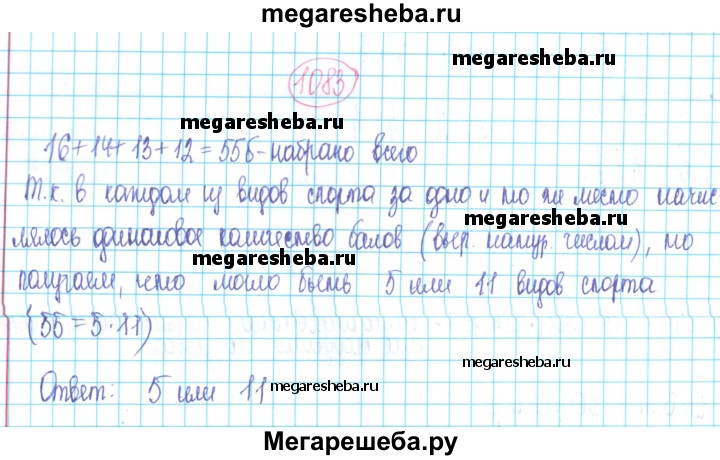 megaresheba.ru
1083
megaresheba.ru
megaresheba.ru
16+14+13+12=55б-набрано всего
Т.к. в каждом из видов спорта за одно и то же место начис
megaresheba.ru
лялось одинаковое количество балов (выр. натур. числом), то
megaresheba.ru
получаем, что могло быть 5 или 11 видов спорта
(55=5·11)
megaresheba.ru
Ответ: 5 или 11
megaresheba.ru
Мегарешеба.ру